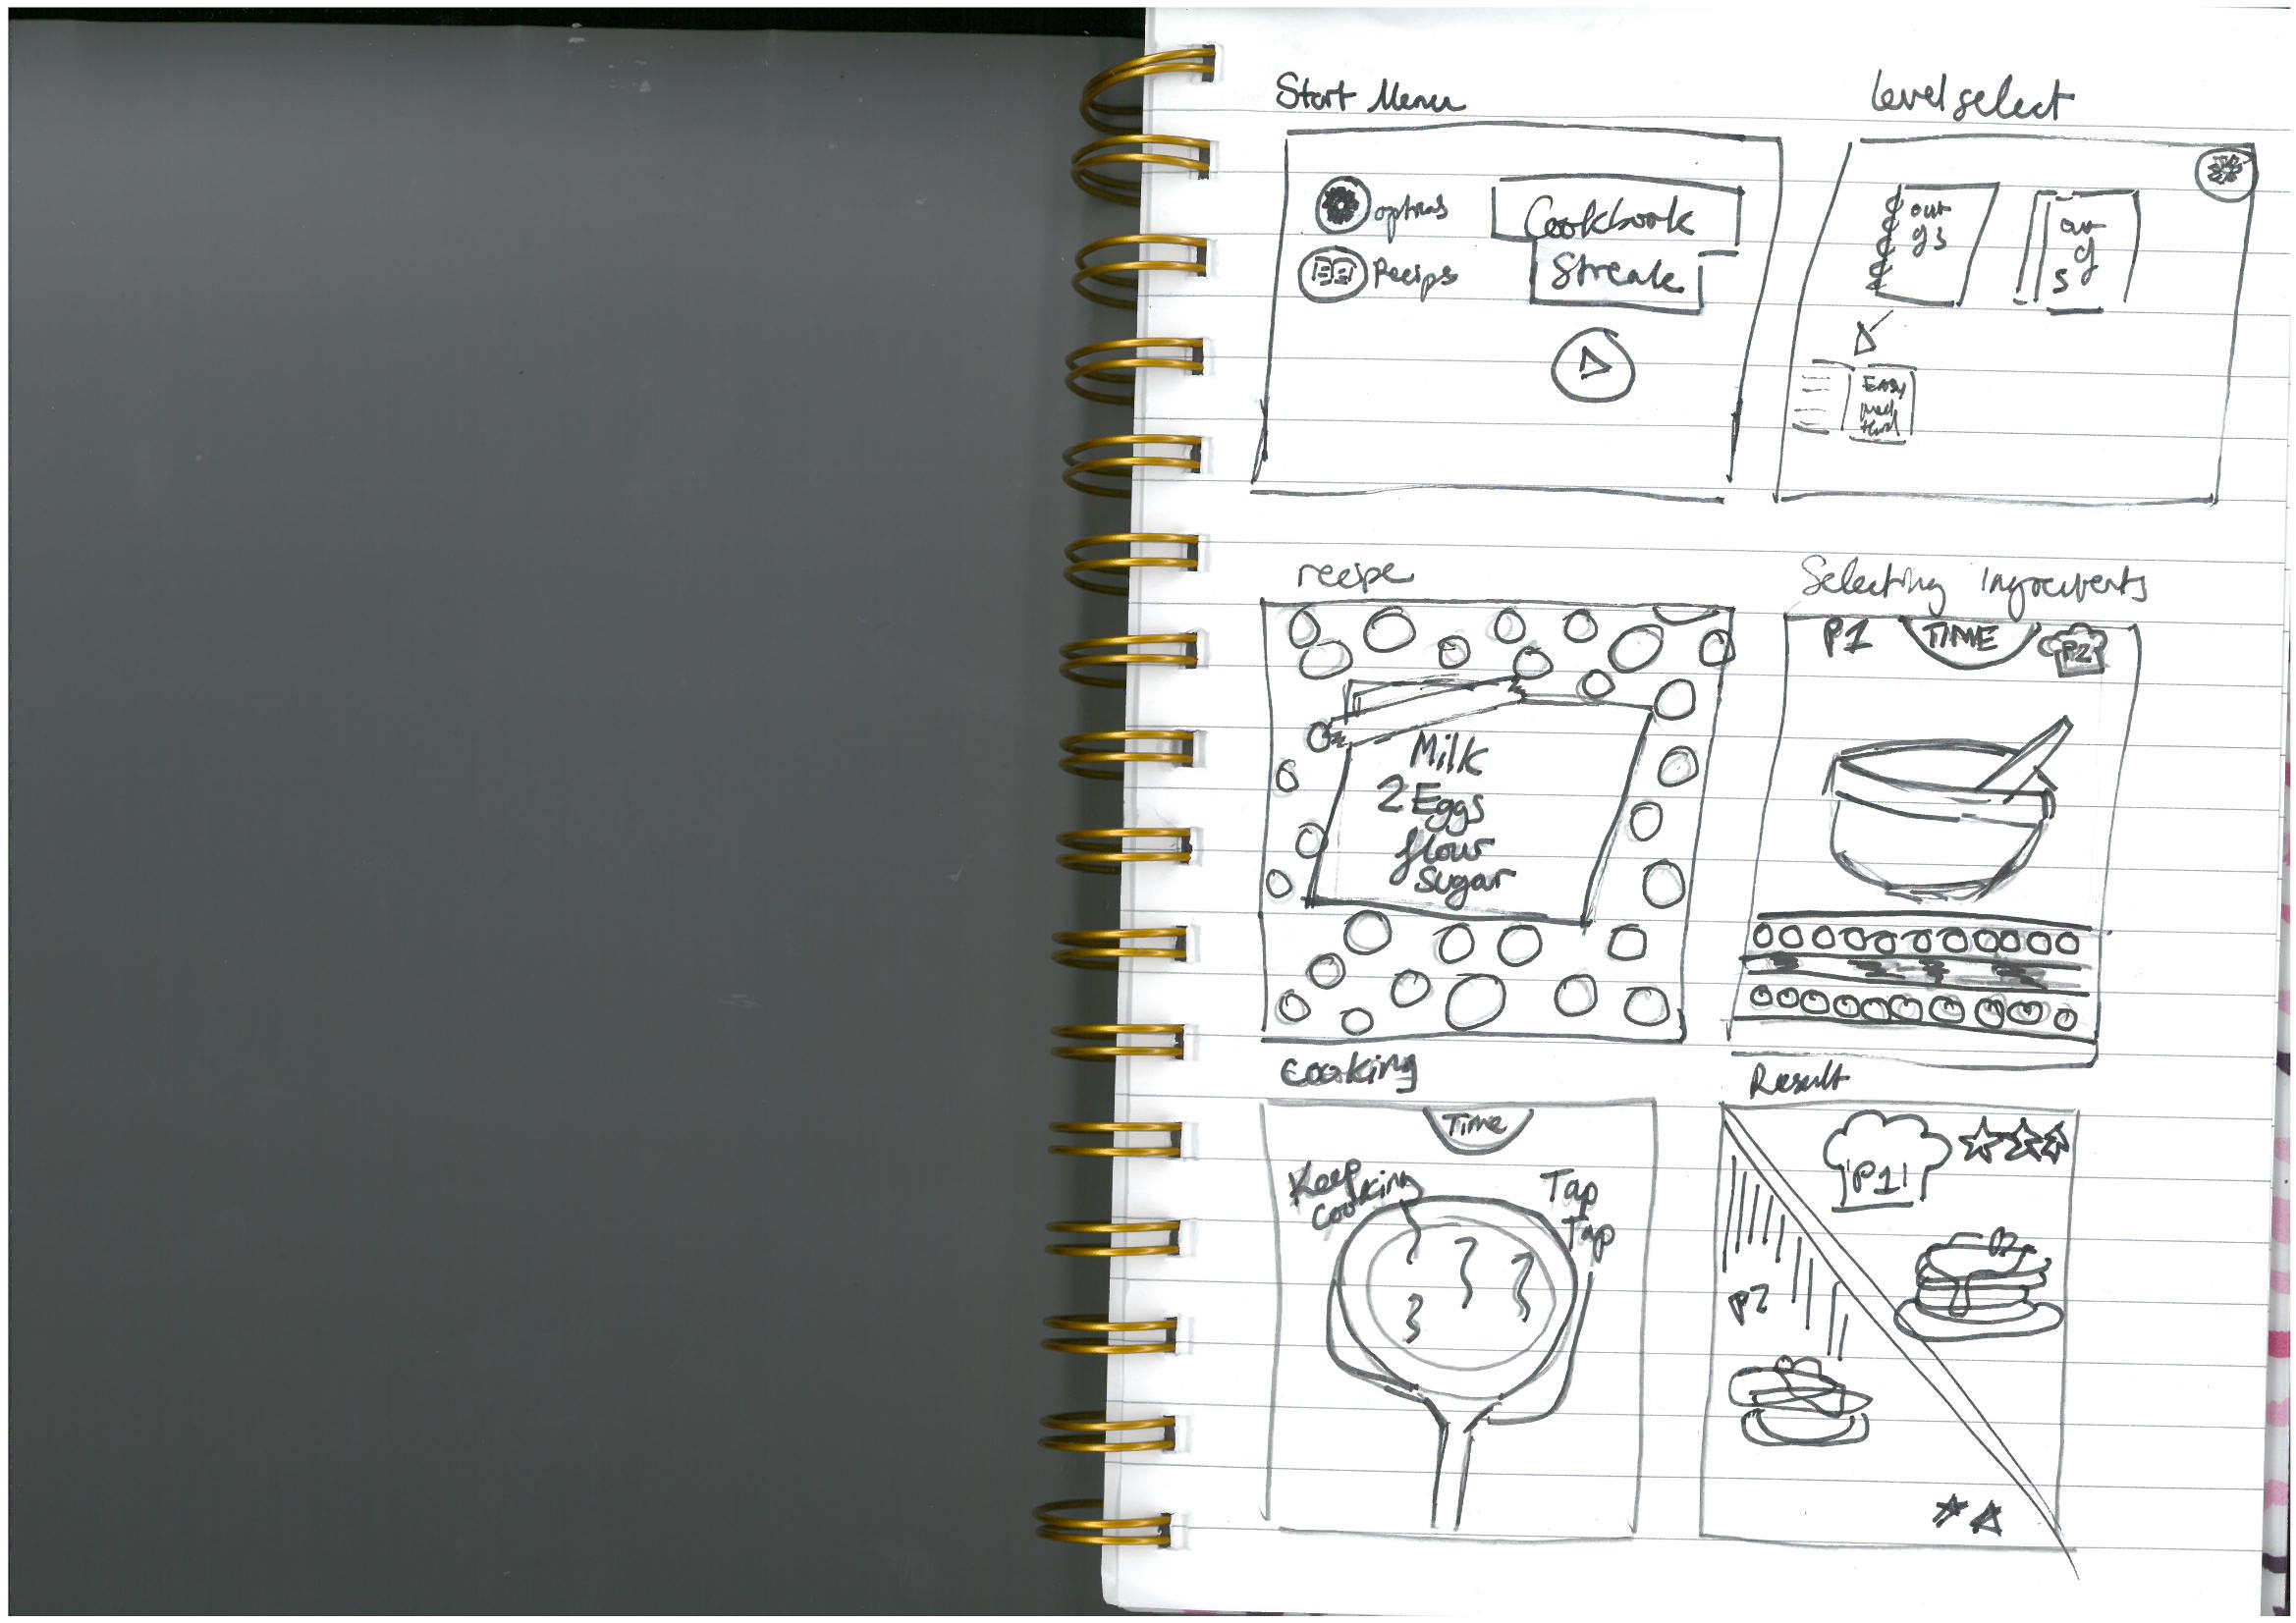 Start Menu
options
Cookbook
Recips
Streak
Level select
Easy
Med
Hard
recipe
Milk
2 Eggs
flour
Sugar
Selecting Ingredients
P1
TIME
P2
Cooking
Time
Keep
Cooking
Tap
Tap
Result
P1
P2